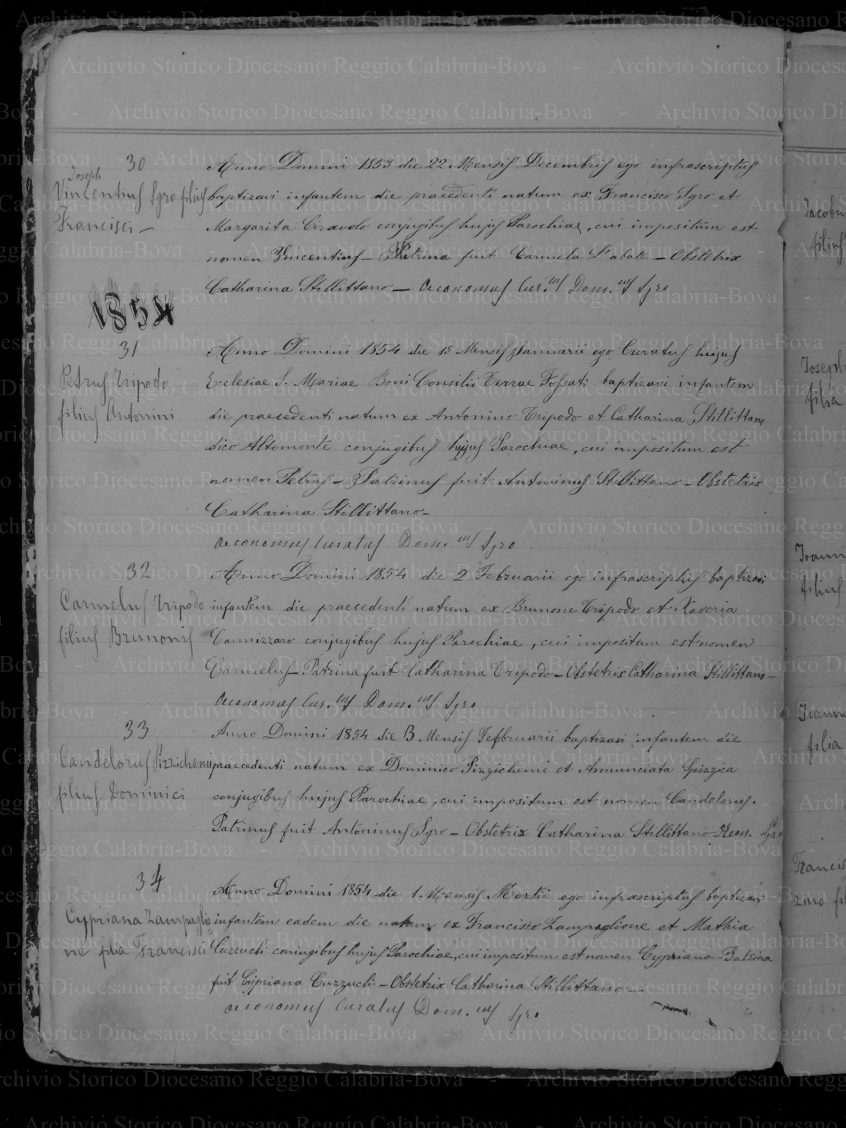 30
Joseph
Vincentius Sgro filius
Francisci –
Anno Domini 1853 die 22 Mensis Decembris ego infrascriptus
baptizavi infantem die praecedenti natum ex Francisco Sgro et
Margarita Ciravolo conjugibus hujus Parochiae, cui impositum est
nomen Vincentius – Patrina fuit Carmela Labate – Obstetrix
Catharina Stillittano – Oeconomus Cur.us Dom.cus Sgro
1854
31
Petrus Tripodo
filius Antonini
Anno Domini 1854 die 15 Mensis Januarii ego Curatus hujus
Ecclesiae S. Mariae Boni Consilii Terrae Fossati baptizavi infantem
die praecedenti natum ex Antonino Tripodo et Catharina Stillittano
dico Altomonte conjugibus hujus Parochiae, cui impositum est
nomen Petrus – Patrinus fuit Antoninus Stillittano – Obstetrix
Catharina Stillittano –
Oeconomus Curatus Dom.cus Sgro
32
Carmelus Tripodo
filius Brunonis
Anno Domini 1854 die 2 Februarii ego infrascriptus baptizavi
infantem die praecedenti natum ex Brunone Tripodo et Xaveria
Cannizzaro conjugibus hujus Parochiae, cui impositum est nomen
Carmelus – Patrina fuit Catharina Tripodo – Obstetrix Catharina Stillittano –
Oeconomus Cur.us Dom.cus Sgro
33
Candelorus Pizzichemi
filius Dominici
Anno Domini 1854 die 3 Mensis Februarii baptizavi infantem die
praecedenti natum ex Dominico Pizzichemi et Annunciata
conjugibus hujus Parochiae, cui impositum est nomen Candelorus.
Patrinus fuit Antoninus Sgro – Obstetrix Catharina Stillittano Oecon. Sgro
34
Cypriana Zampaglio
ne filia Francisci
Anno Domini 1854 die 1 Mensis Martii ego infrascriptus baptizavi
infantem eadem die natam ex Francisco Zampaglione et Mathia
Cuzzucli conjugibus hujus Parochiae, cui impositum est nomen Cypriana – Patrina
fuit Cipriana Cuzzucli – Obstetrix Catharina Stillittano –
Oeconomus Curatus Dom.cus Sgro
Jacobu
filius
Joseph
filia
Joann
filius
Joanna
filia
Francis
filia
Archivio Storico Diocesano Reggio Calabria-Bova